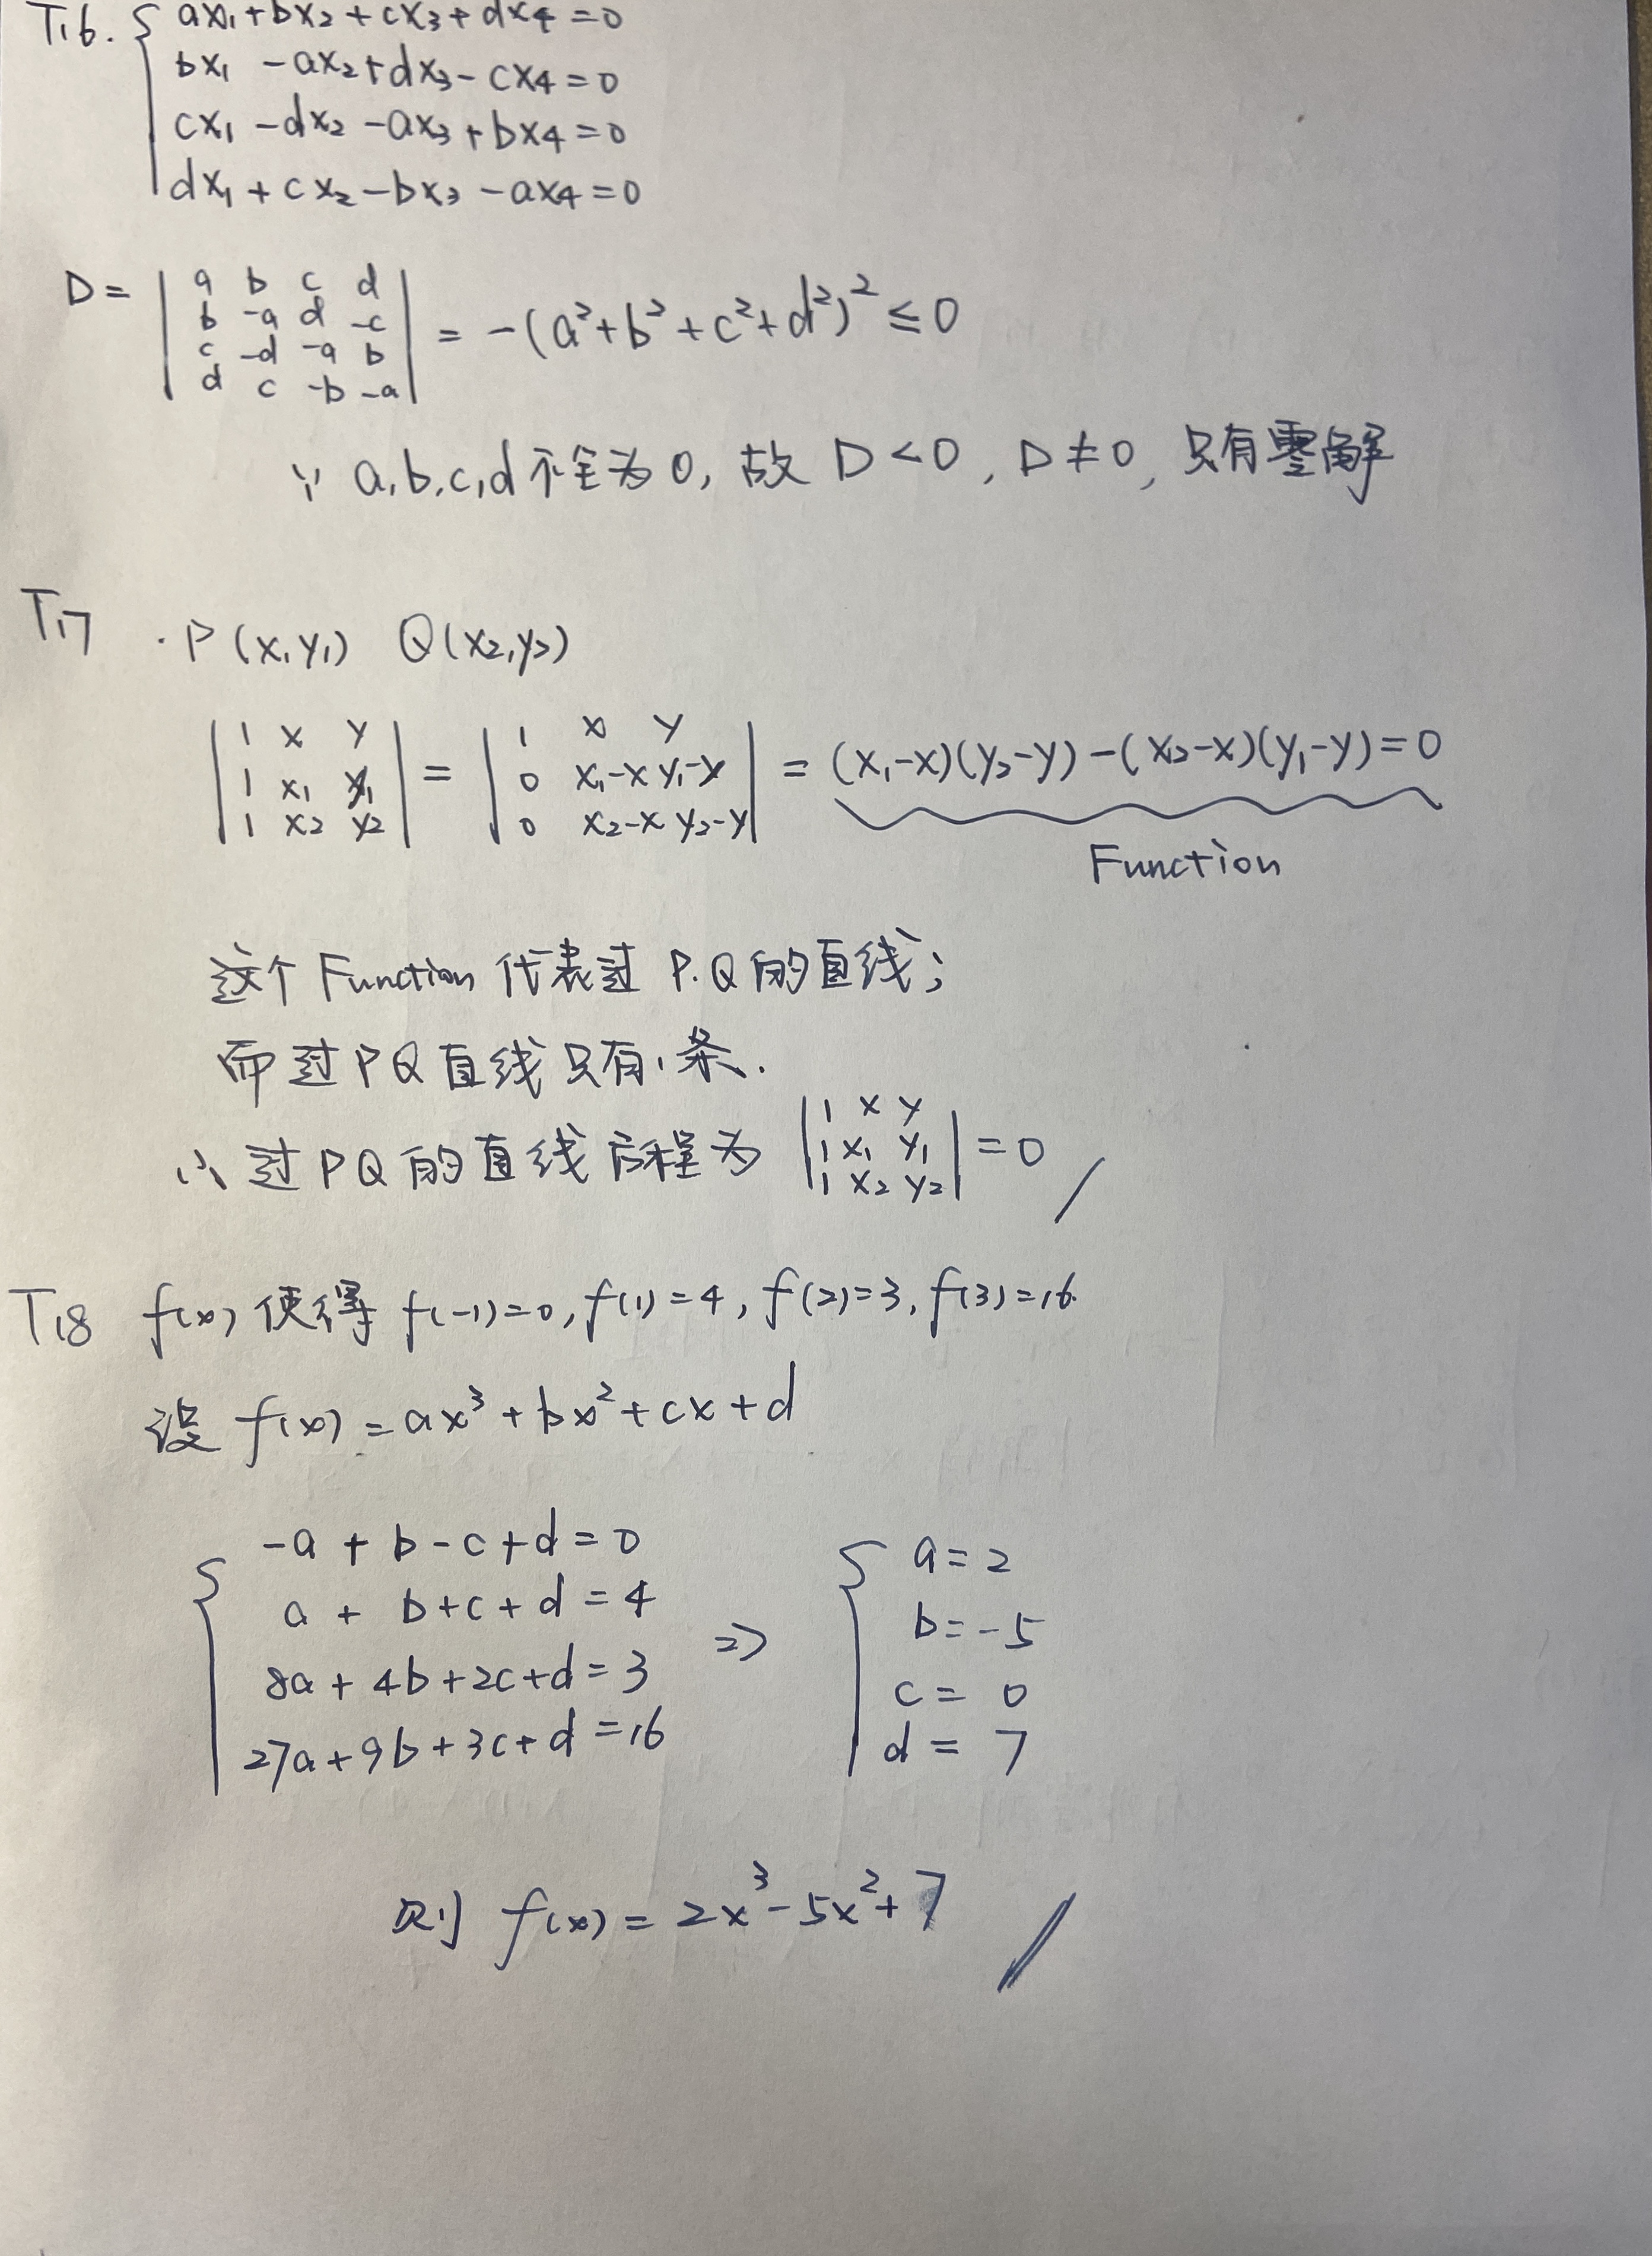 T16. { ax₁+bx₂+cx₃+dx₄=0
bx₁-ax₂+dx₃-cx₄=0
cx₁-dx₂-ax₃+bx₄=0
dx₁+cx₂-bx₃-ax₄=0
D= | a b c d |
| b -a d -c | = -(a²+b²+c²+d²)² ≤0
| c -d -a b |
| d c -b -a |
∵ a,b,c,d 不全为0, 故 D<0, D≠0, 只有零解
T17 . P(x₁y₁) Q(x₂,y₂)
| 1 x y | | 1 x y |
| 1 x₁ y₁ | = | 0 x₁-x y₁-y | = (x₁-x)(y₂-y)-(x₂-x)(y₁-y)=0
| 1 x₂ y₂ | | 0 x₂-x y₂-y |
Function
这个 Function 代表过 P.Q 的直线;
而过PQ直线只有1条.
∴ 过PQ的直线方程为 | 1 x y |
| 1 x₁ y₁ | =0
| 1 x₂ y₂ |
T18 f(x) 使得 f(-1)=0, f(1)=4, f(2)=3, f(3)=16.
设 f(x)=ax³+bx²+cx+d
{ -a+b-c+d=0 { a=2
a+b+c+d=4 ⇒ b=-5
8a+4b+2c+d=3 c=0
27a+9b+3c+d=16 d=7
则 f(x)=2x³-5x²+7